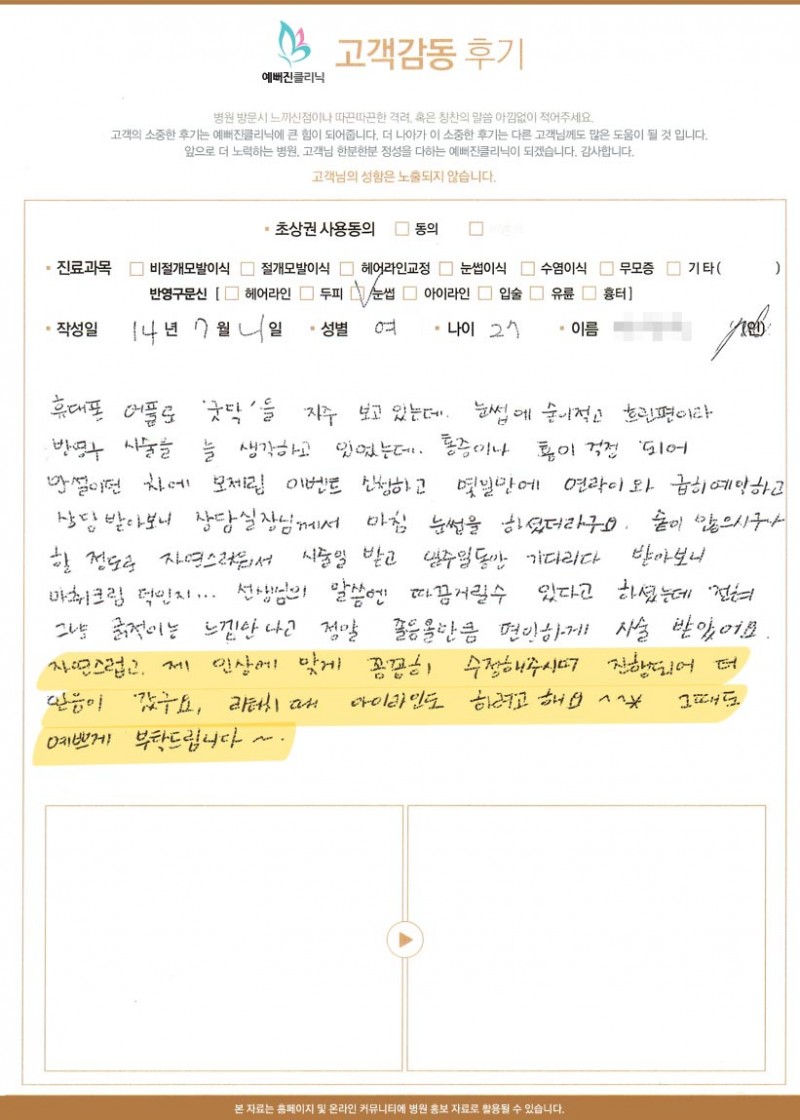 예뻐진클리닉
고객감동 후기
병원 방문시 느끼신점이나 따끈따끈한 격려, 혹은 칭찬의 말씀 아낌없이 적어주세요.
고객의 소중한 후기는 예뻐진클리닉에 큰 힘이 되어줍니다. 더 나아가 이 소중한 후기는 다른 고객님께도 많은 도움이 될 것 입니다.
앞으로 더 노력하는 병원, 고객님 한분한분 정성을 다하는 예뻐진클리닉이 되겠습니다. 감사합니다.
고객님의 성함은 노출되지 않습니다.
• 초상권 사용동의 □ 동의 □
• 진료과목 □ 비절개모발이식 □ 절개모발이식 □ 헤어라인교정 □ 눈썹이식 □ 수염이식 □ 무모증 □ 기 타 ( )
반영구문신 [ □ 헤어라인 □ 두피 ☑ 눈썹 □ 아이라인 □ 입술 □ 유륜 □ 흉터 ]
• 작성일 14년 7월 일 • 성별 여 • 나이 27 • 이름 (인)
휴대폰 어플로 '굿닥'을 자주 보고 있는데. 눈썹에 숱이적고 흐린편이라
반영구 시술을 늘 생각하고 있었는데. 통증이나 효이 걱정 되어
망설이던 차에 모제림 이벤트 신청하고 몇일만에 연락이와 급히예약하고
상담 받아보니 상담실장님께서 마침 눈썹을 하셨더라구요. 숱이 많으시구나
할 정도로 자연스러워서 시술일 받고 일주일동안 기다리다 받아보니
마취크림 덕인지... 선생님의 말씀엔 따끔거릴수 있다고 하셨는데 전혀
그냥 긁적이는 느낌만 나고 정말 졸음올만큼 편안하게 시술 받았어요.
자연스럽고, 제 인상에 맞게 꼼꼼히 수정해주시며 진행되어 더
믿음이 갔구요, 리터치 때 아이라인도 하려고 해요 ~~* 그때도
예쁘게 부탁드립니다 ~.
본 자료는 홈페이지 및 온라인 커뮤니티에 병원 홍보 자료로 활용될 수 있습니다.